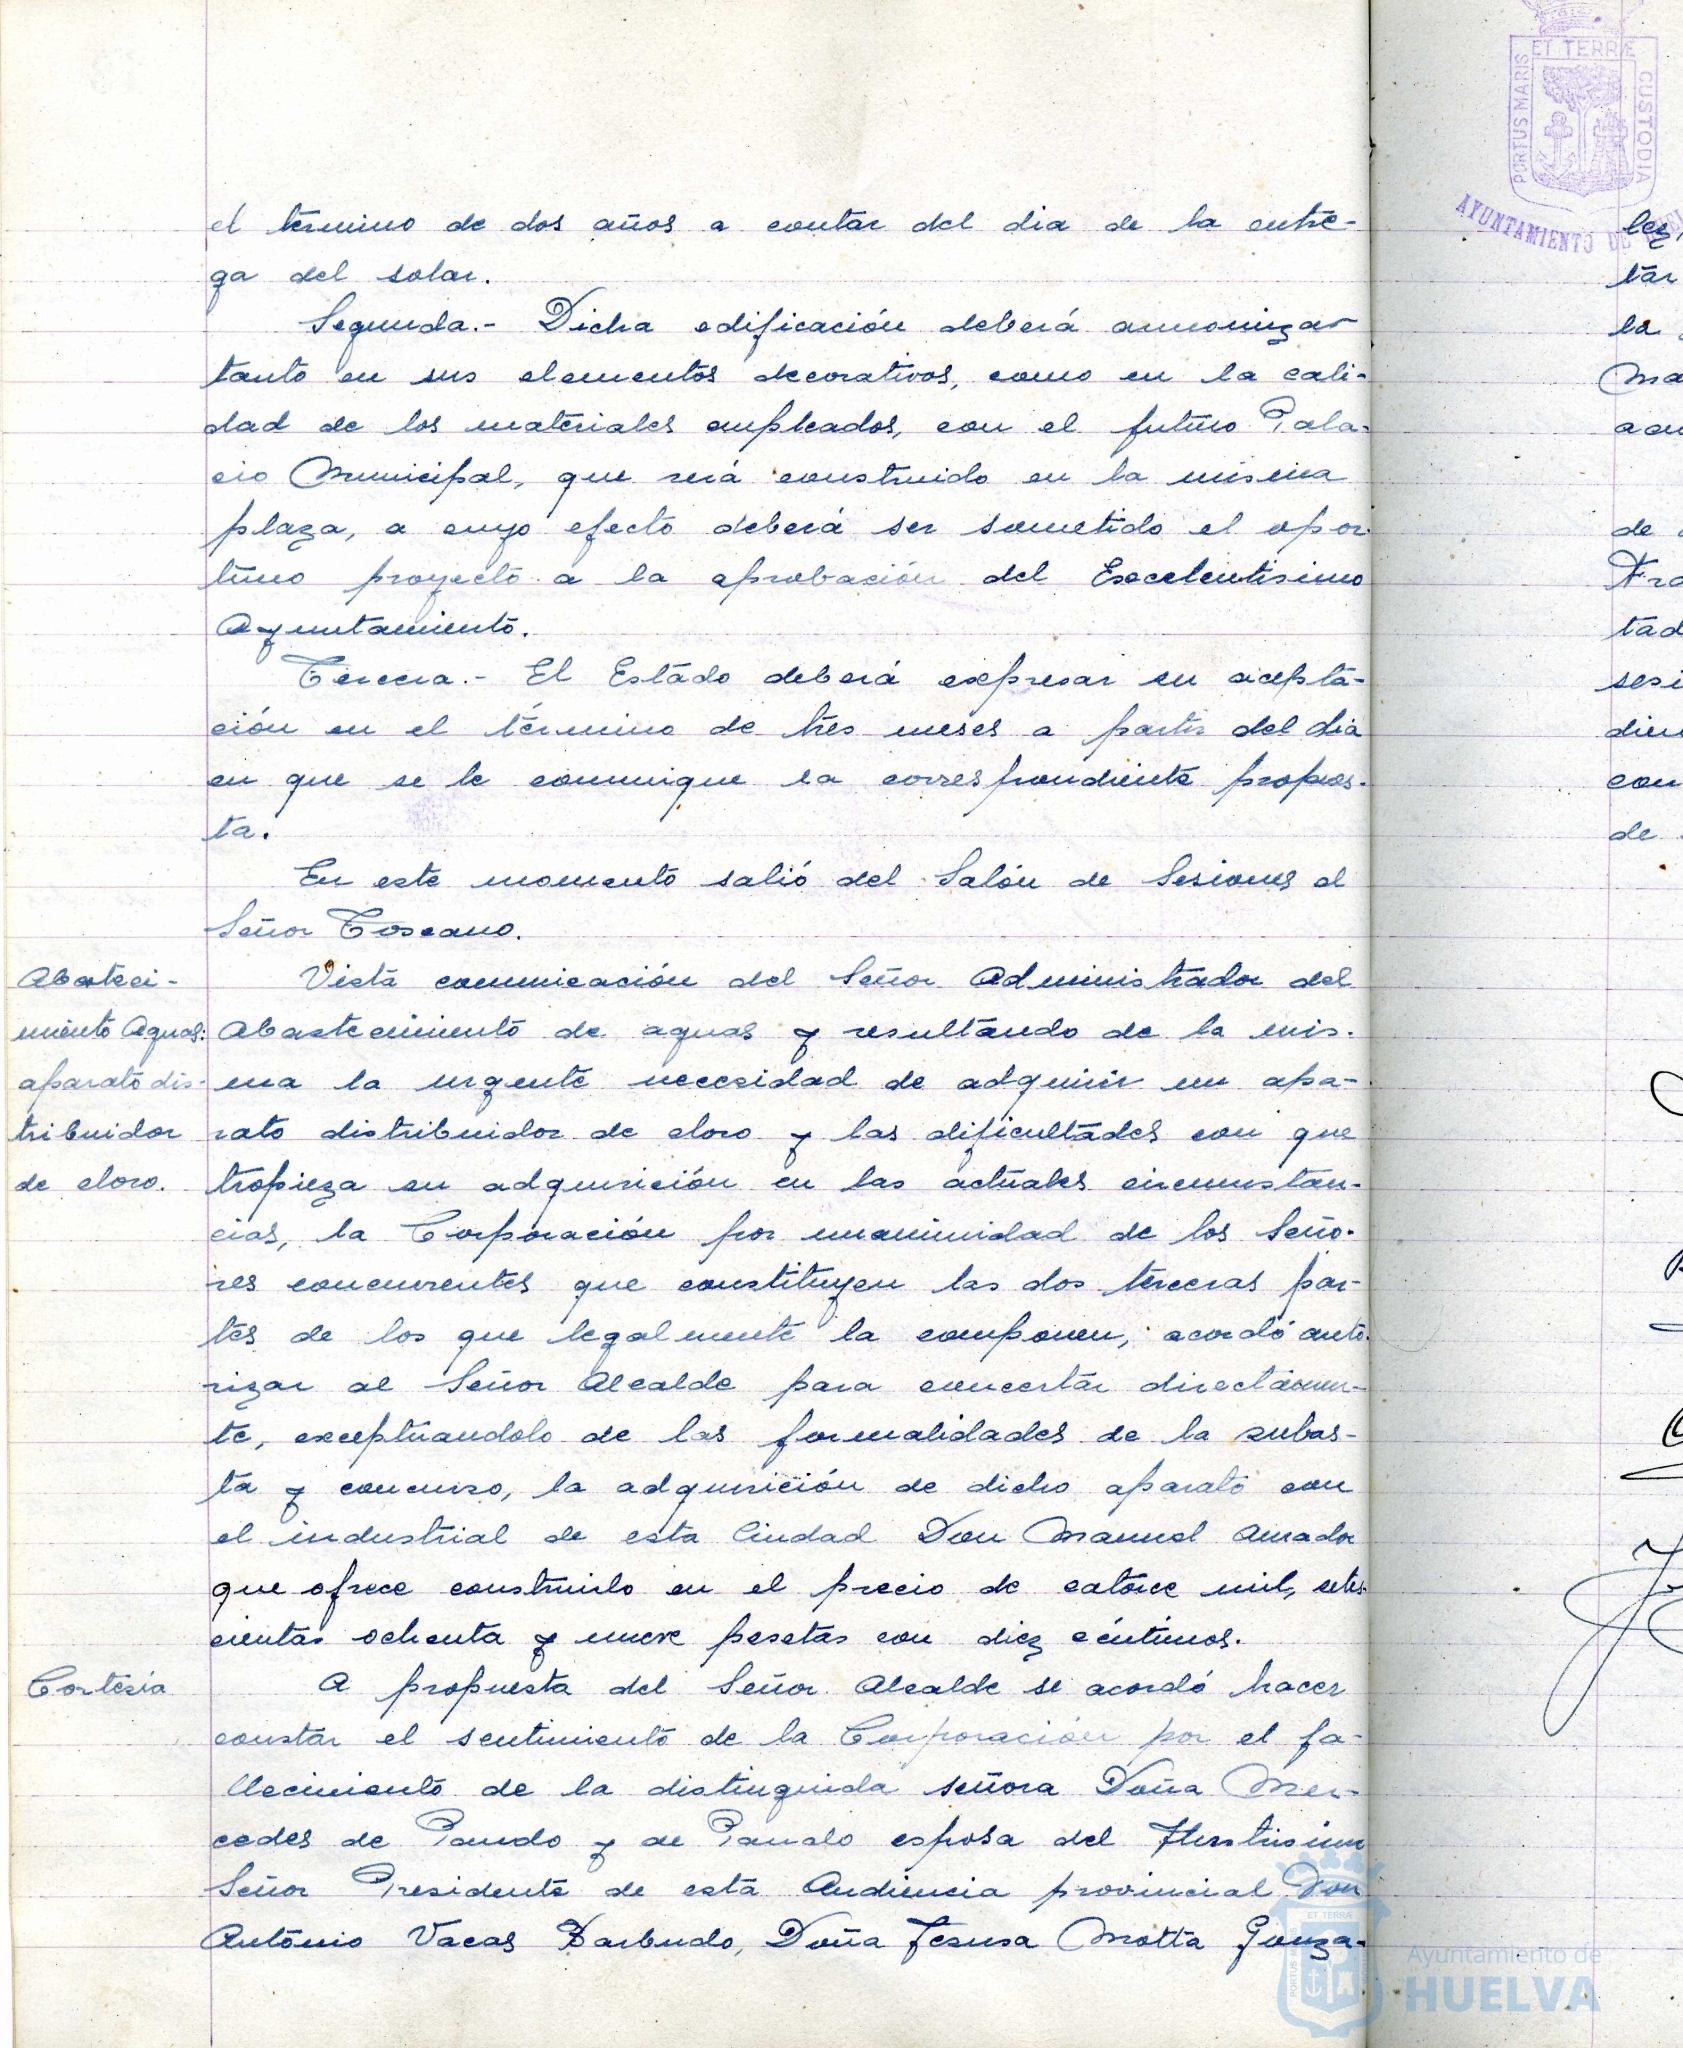 el término de dos años a contar del dia de la entre-
ga del solar.
Segunda.- Dicha edificación deberá armonizar
tanto en sus elementos decorativos, como en la cali-
dad de los materiales empleados, con el futuro Pala-
cio Municipal, que será construido en la misma
plaza, a cuyo efecto deberá ser sometido el opor-
tuno proyecto a la aprobación del Excelentisimo
Ayuntamiento.
Tercera.- El Estado deberá expresar su acepta-
ción en el término de tres meses a partir del dia
en que se le comunique la correspondiente propues-
ta.
En este momento salió del Salón de Sesiones el
Señor Toscano.
Abasteci-
miento Aguas:
aparato dis-
tribuidor
de cloro.
Vista comunicación del Señor Administrador del
Abastecimiento de aguas y resultando de la mis-
ma la urgente necesidad de adquirir un apa-
rato distribuidor de cloro y las dificultades con que
tropieza su adquisición en las actuales circunstan-
cias, la Corporación por unanimidad de los Seño-
res concurrentes que constituyen las dos terceras par-
tes de los que legalmente la componen, acordó auto-
rizar al Señor Alcalde para concertar directamen-
te, exceptuandolo de las formalidades de la subas-
ta y concurso, la adquisición de dicho aparato con
el industrial de esta Ciudad Don Manuel Amador
que ofrece construirlo en el precio de catorce mil, setes-
cientas ochenta y nueve pesetas con diez céntimos.
Cortesia
A propuesta del Señor Alcalde se acordó hacer
constar el sentimiento de la Corporación por el fa-
llecimiento de la distinguida señora Doña Mer-
cedes de Pando y de Pando esposa del Ilustrisimo
Señor Presidente de esta Audiencia provincial Don
Antonio Vacas Barbudo, Doña Jesusa Motta Gonza-
PORTUS MARIS ET TERRÆ CUSTODIA
AYUNTAMIENTO DE
lez,
tar
la
Ma
acu
de
Fra
tad
sesi
dien
con
de
Ayuntamiento de
HUELVA